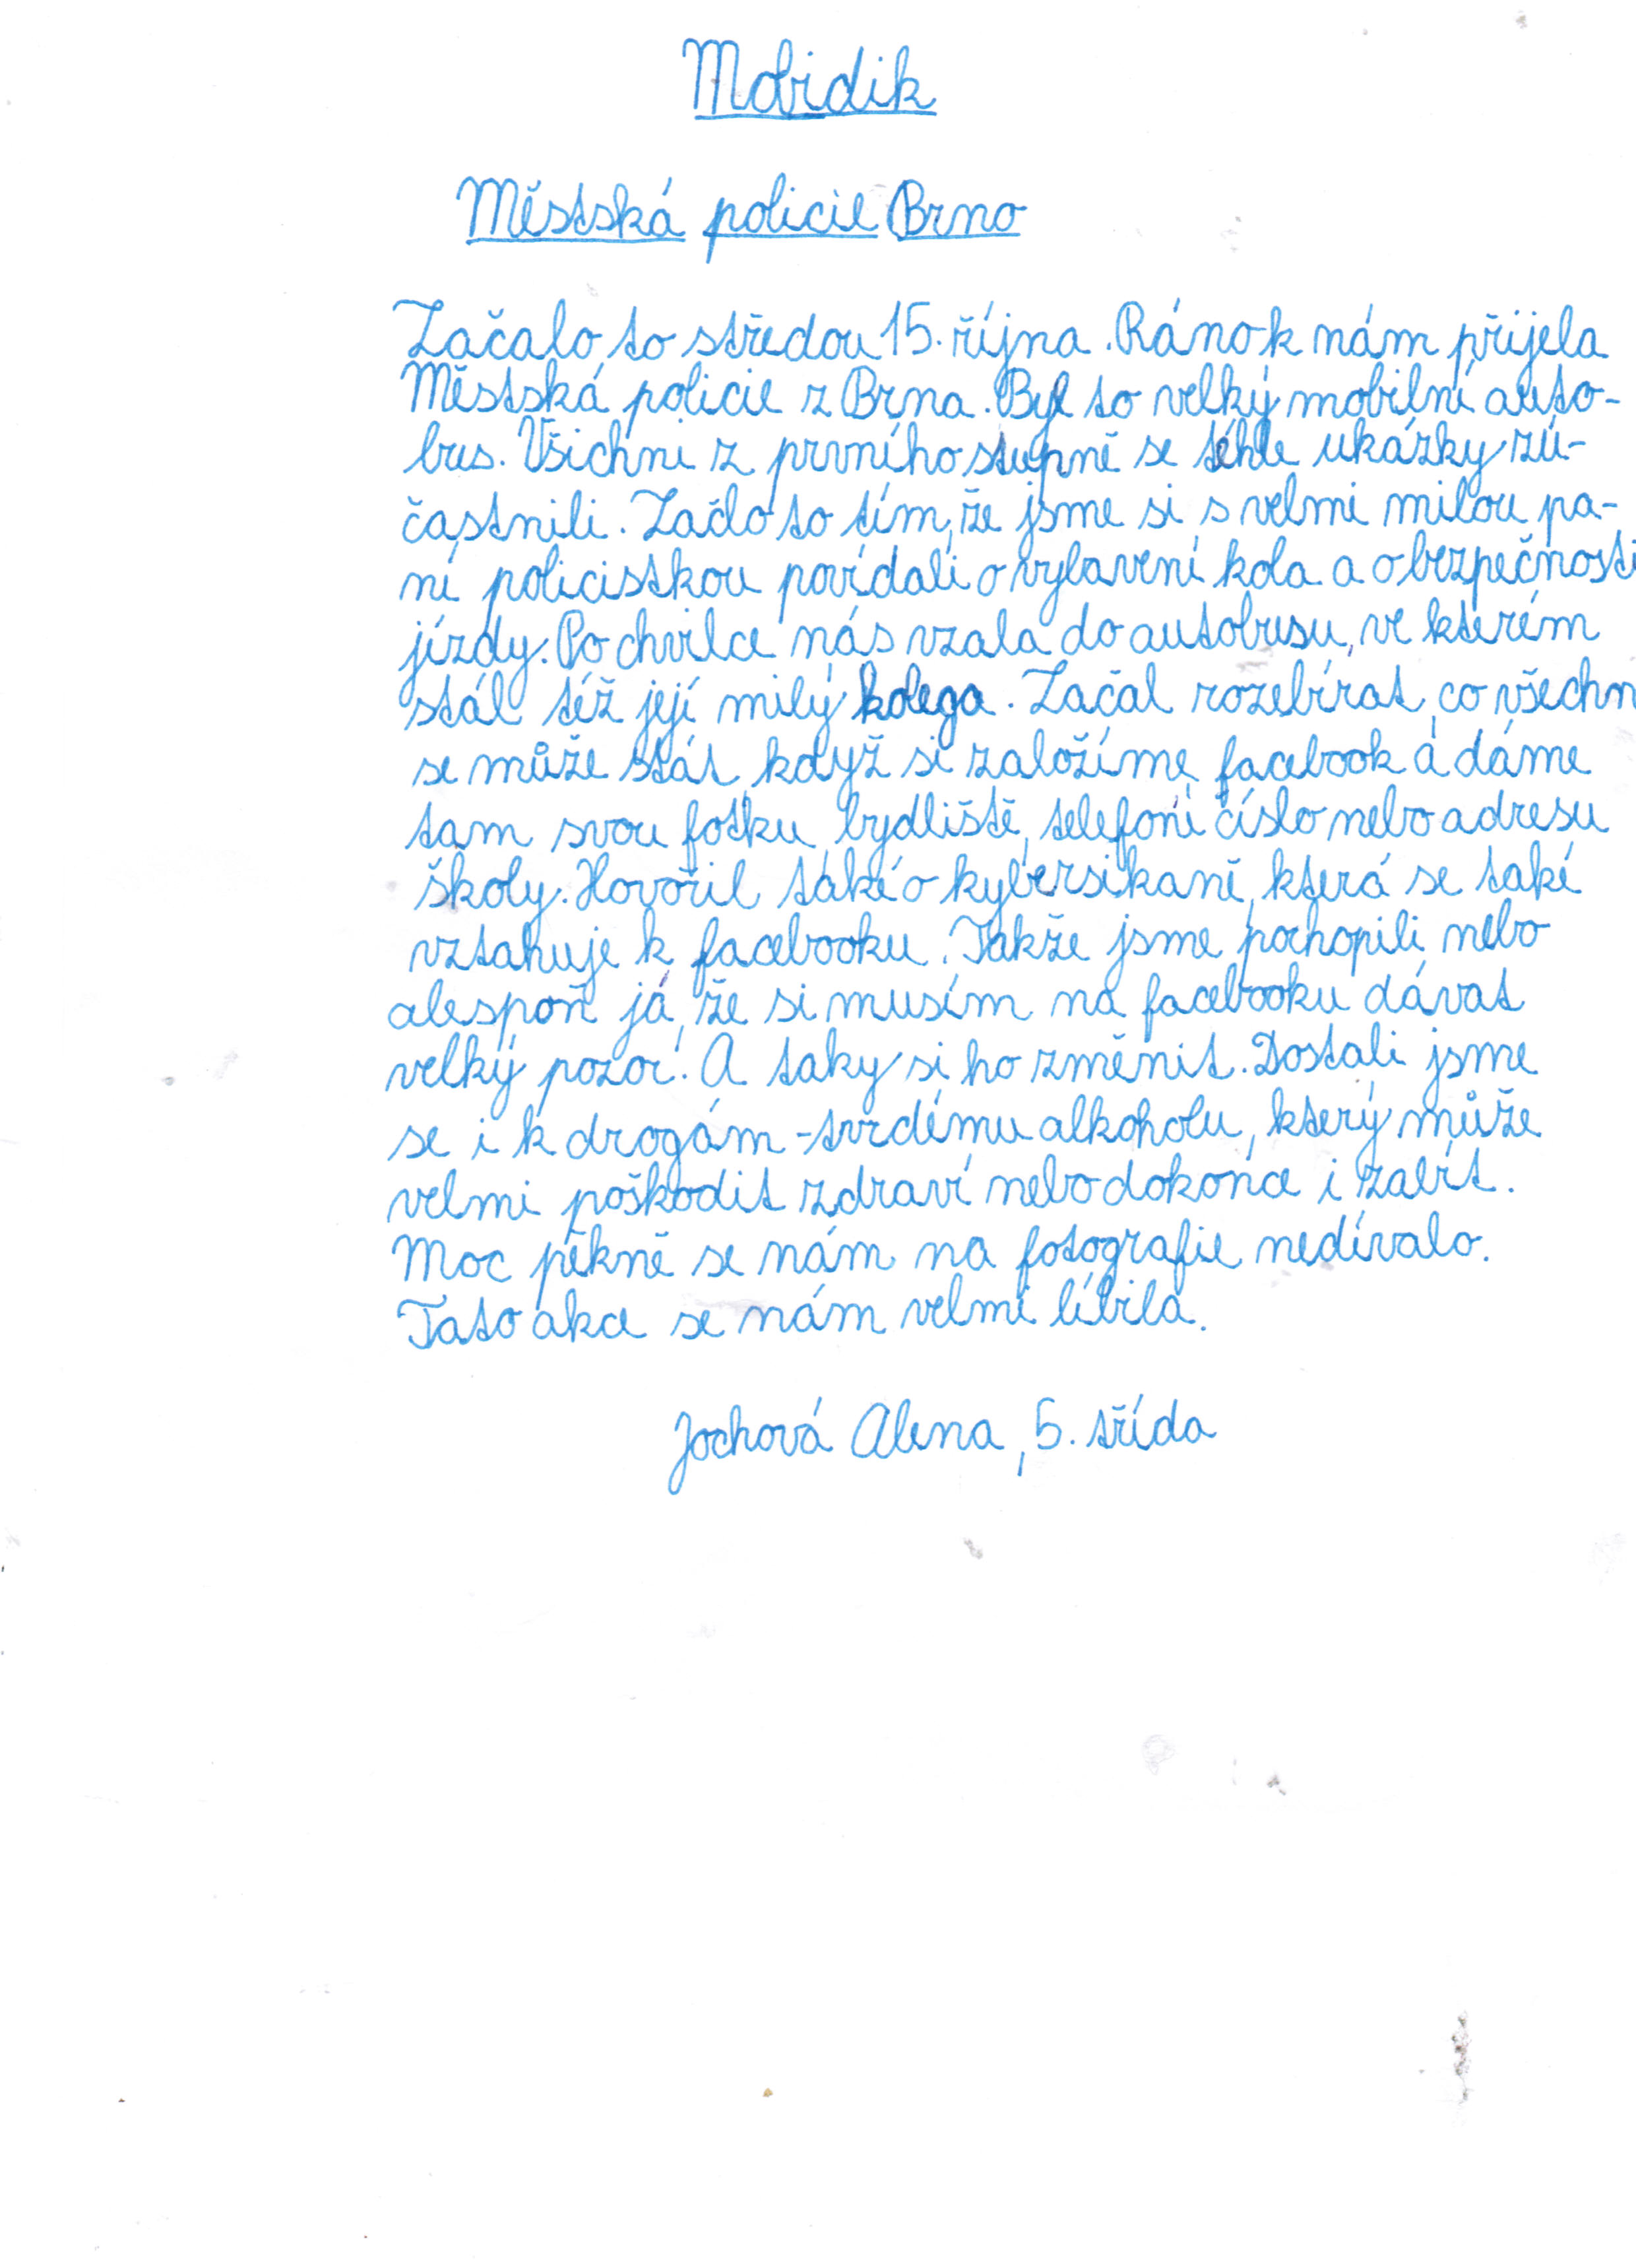 Mobidik
Městská policie Brno
Začalo to středou 15. října. Ráno k nám přijela
Městská policie z Brna. Byl to velký mobilní auto-
bus. Všichni z prvního stupně se téhle ukázky zú-
častnili. Začlo to tím, že jsme si s velmi milou pa-
ní policistkou povídali o vybavení kola a o bezpečnosti
jízdy. Po chvilce nás vzala do autobusu, ve kterém
stál též její milý kolega. Začal rozebírat, co všechn
se může stát, když si založíme facebook a dáme
tam svou fotku, bydliště, telefoní číslo nebo adresu
školy. Hovořil také o kybersikaně, která se také
vztahuje k facebooku. Takže jsme pochopili, nebo
alespoň já, že si musím na facebooku dávat
velký pozor. A taky si ho změnit. Dostali jsme
se i k drogám - tvrdému alkoholu, který může
velmi poškodit zdraví nebo dokonce i zabít.
Moc pěkně se nám na fotografie nedívalo.
Tato akce se nám velmi líbila.
Jochová Alena, 5. třída